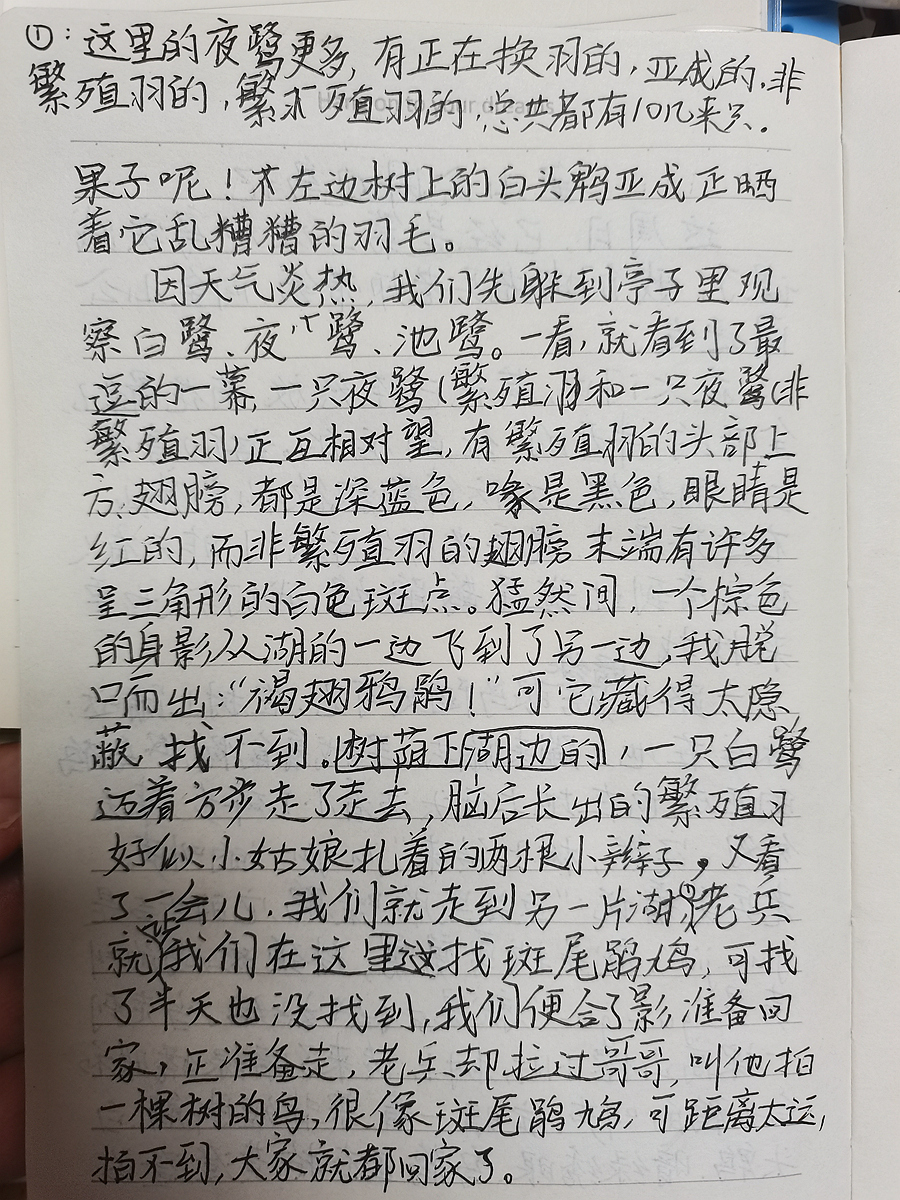 ①：这里的夜鹭更多，有正在换羽的，亚成的，非
繁殖羽的，繁殖羽的，总共都有10几来只。
果子呢！不左边树上的白头鹎亚成正晒
着它乱糟糟的羽毛。
因天气炎热，我们先躲到亭子里观
察白鹭、夜鹭、池鹭。一看，就看到了最
逗的一幕，一只夜鹭（繁殖羽）和一只夜鹭（非
繁殖羽）正互相对望，有繁殖羽的头部上
方、翅膀，都是深蓝色，喙是黑色，眼睛是
红的，而非繁殖羽的翅膀末端有许多
呈三角形的白色斑点。猛然间，一个棕色
的身影从湖的一边飞到了另一边，我脱
口而出：“褐翅鸦鹃！”可它藏得太隐
蔽，找不到。树荫下湖边的，一只白鹭
迈着方步走了走去，脑后长出的繁殖羽
好似小姑娘扎着的两根小辫子。又看
了一会儿，我们就走到另一片湖①，老兵
就让我们在这里找斑尾鹃鸠，可找
了半天也没找到，我们便合了影准备回
家，正准备走，老兵却拉过哥哥，叫他拍
一棵树的鸟，很像斑尾鹃鸠，可距离太远，
拍不到，大家就都回家了。